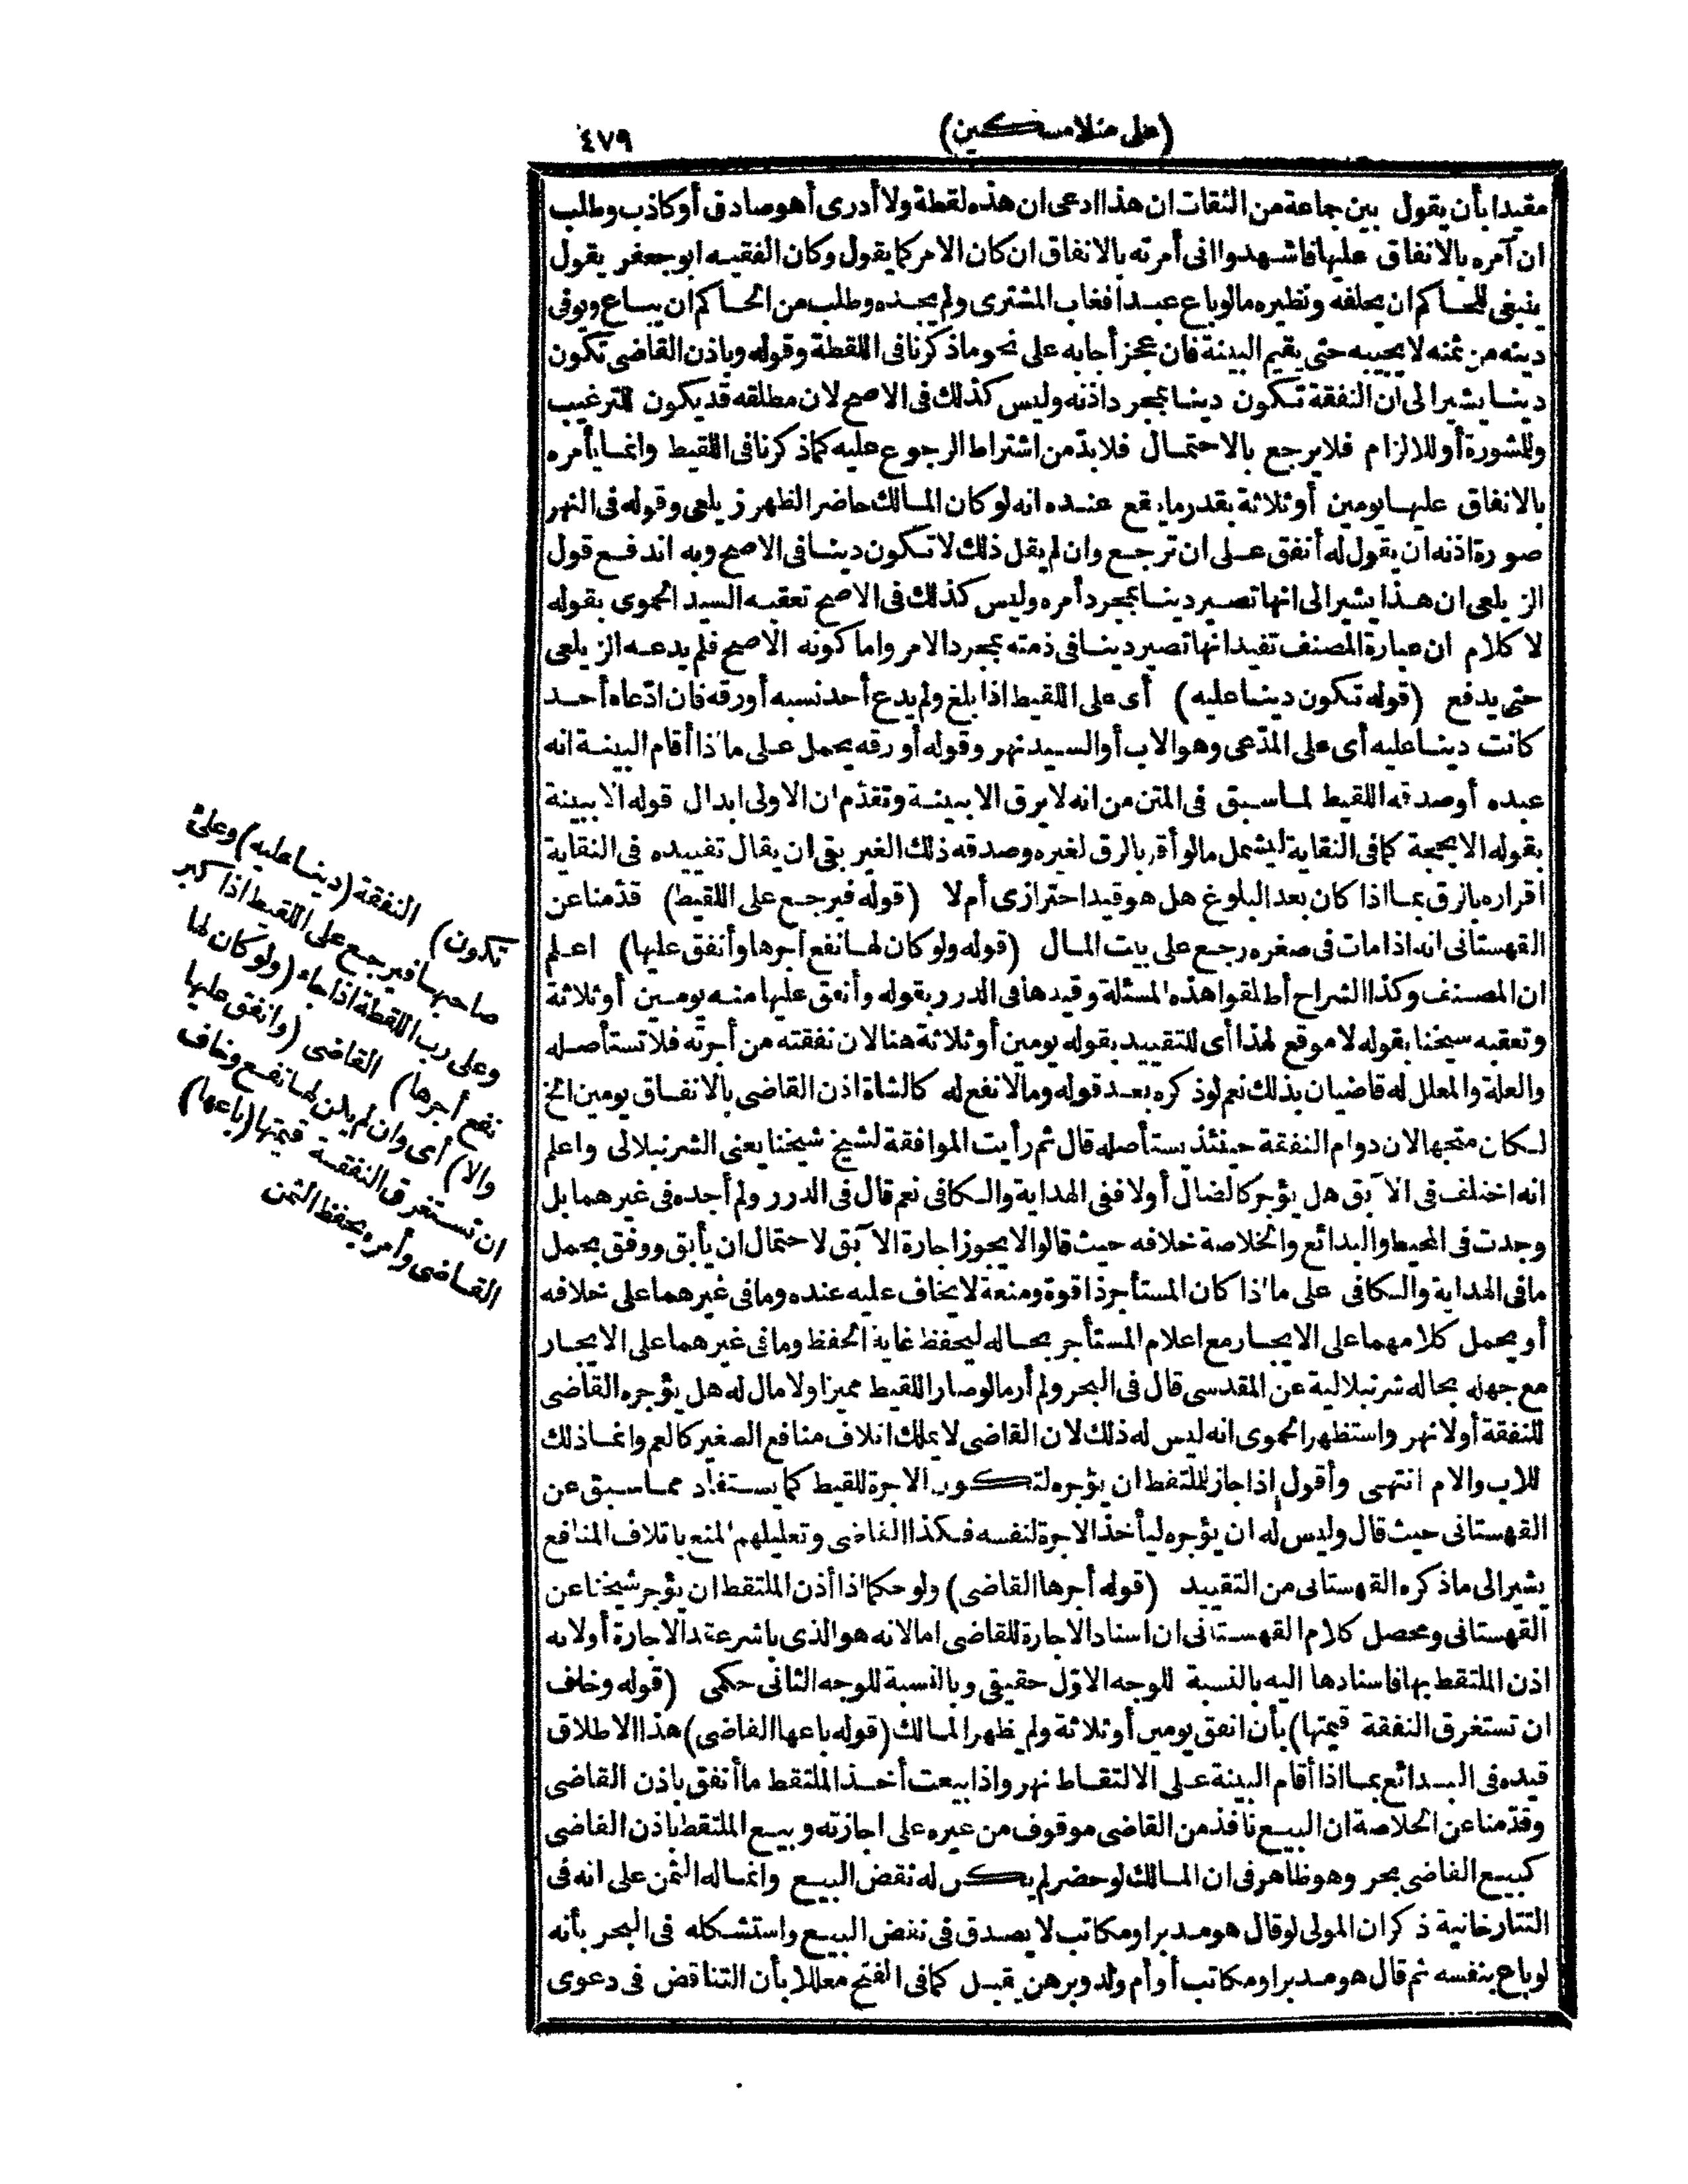 (على منلا مسكين)
٤٧٩
مقيدا بأن يقول بين جماعة من الثقات ان هذا ادعى ان هذه لقطة ولا أدرى أهو صادق أو كاذب وطلب
ان آمره بالانفاق عليها فاشهدوا انى أمرته بالانفاق ان كان الامر كما يقول وكان الفقيه ابو جعفر يقول
ينبغى للحاكم ان يحلفه ونظيره ما لو باع عبدا فغاب المشترى ولم يجده وطلب من الحاكم ان يباع ويوفى
دينه من ثمنه لا يجيبه حتى يقيم البينة فان عجز أجابه على نحو ما ذكرنا فى اللقطة وقوله وباذن القاضى تكون
دينا يشير الى ان النفقة تكون دينا بمجرد اذنه وليس كذلك فى الاصح لان مطلقه قد يكون للترغيب
وللمشورة أو للالزام فلا يرجع بالاحتمال فلا بدّ من اشتراط الرجوع عليه كما ذكرنا فى اللقيط وانما يأمره
بالانفاق عليها يومين أو ثلاثة بقدر ما يقع عنده انه لو كان المالك حاضرا لظهر زيلعى وقوله فى النهر
صورة اذنه ان يقول له أنفق على ان ترجع وان لم يقل ذلك لا تكون دينا فى الاصح وبه اندفع قول
الزيلعى ان هذا يشير الى انها تصير دينا بمجرد أمره وليس كذلك فى الاصح تعقبه السيد الحموى بقوله
لا كلام ان عبارة المصنف تفيد انها تصير دينا فى ذمته بمجرد الامر واما كونه الاصح فلم يدعه الزيلعى
حتى يدفع (قوله تكون دينا عليه) أى على اللقيط اذا بلغ ولم يدع أحد نسبه أو رقه فان ادّعاه أحد
كانت دينا عليه أى على المدّعى وهو الاب أو السيد نهر وقوله أو رقه يحمل على ما اذا أقام البينة انه
عبده أو صدقه اللقيط لما سبق فى المتن من انه لا يرق الا ببينة وتقدّم ان الاولى ابدال قوله الا ببينة
بقوله الا بحجة كما فى النقاية ليشمل ما لو أقر بالرق لغيره وصدقه ذلك الغير بقى ان يقال تقييده فى النقاية
اقراره بالرق بما اذا كان بعد البلوغ هل هو قيد احترازى أم لا (قوله فيرجع على اللقيط) قدّمنا عن
القهستانى انه اذا مات فى صغره رجع على بيت المال (قوله ولو كان لها نفع أجرها وأنفق عليها) اعلم
ان المصنف وكذا الشراح أطلقوا هذه المسئلة وقيدها فى الدرر بقوله وأنفق عليها منه يومين أو ثلاثة
وتعقبه سيخنا بقوله لا موقع لهذا أى للتقييد بقوله يومين أو ثلاثة هنا لان نفقته من أجرته فلا تستأصله
والعلة والمعلل له قاضيان بذلك نعم لو ذكره بعد قوله وما لا نفع له كالشاة اذن القاضى بالانفاق يومين الخ
لكان متجها لان دوام النفقة حينئذ يستأصله قال ثم رأيت الموافقة لشيخ شيخنا يعنى الشرنبلالى واعلم
انه اختلف فى الآبق هل يؤجر كالضال أولا ففى الهداية والكافى نعم قال فى الدرر ولم أجده فى غيرهما بل
وجدت فى المحيط والبدائع والخلاصة خلافه حيث قالوا لا يجوز اجارة الآبق لاحتمال ان يأبق ووفق بحمل
ما فى الهداية والكافى على ما اذا كان المستأجر ذا قوة ومنعة لا يخاف عليه عنده وما فى غيرهما على خلافه
أو يحمل كلامهما على الايجار مع اعلام المستأجر بحاله ليحفظ غاية الحفظ وما فى غيرهما على الايجار
مع جهله بحاله شرنبلالية عن المقدسى قال فى البحر ولم أر ما لو صار اللقيط مميزا ولا مال له هل يؤجره القاضى
للنفقة أولا نهر واستظهر الحموى انه ليس له ذلك لان القاضى لا يملك اتلاف منافع الصغير كالعم وانما ذلك
للاب والام انتهى وأقول اذا جاز للملتقط ان يؤجره لتكون الاجرة للقيط كما يستفاد مما سبق عن
القهستانى حيث قال وليس له ان يؤجره ليأخذ الاجرة لنفسه فكذا القاضى وتعليلهم المنع باتلاف المنافع
يشير الى ما ذكره القهستانى من التقييد (قوله أجرها القاضى) ولو حكما اذا أذن الملتقط ان يؤجر شيخنا عن
القهستانى ومحصل كلام القهستانى ان اسناد الاجارة للقاضى اما لانه هو الذى باشر عقد الاجارة أو لانه
اذن الملتقط بها فاسنادها اليه بالنسبة للوجه الاوّل حقيقى وبالنسبة للوجه الثانى حكمى (قوله وخاف
ان تستغرق النفقة قيمتها) بأن انفق يومين أو ثلاثة ولم يظهر المالك (قوله باعها القاضى) هذا الاطلاق
قيده فى البدائع بما اذا أقام البينة على الالتقاط نهر واذا بيعت أخذ الملتقط ما أنفق باذن القاضى
وقدّمنا عن الخلاصة ان البيع نافذ من القاضى موقوف من غيره على اجازته وبيع الملتقط باذن القاضى
كبيع القاضى بحر وهو ظاهر فى ان المالك لو حضر لم يكن له نقض البيع وانما له الثمن على انه فى
التتارخانية ذكر ان المولى لو قال هو مدبر او مكاتب لا يصدق فى نقض البيع واستشكله فى البحر بأنه
لو باع بنفسه ثم قال هو مدبر او مكاتب أو أم ولد وبرهن يقبل كما فى الفتح معللا بأن التناقض فى دعوى
تكون) النفقة (دينا عليه) وعلى
صاحبها فيرجع على اللقيط اذا كبر
وعلى رب اللقطة اذا جاء (ولو كان لها
نفع أجرها) القاضى (وانفق عليها
والا) أى وان لم يكن لها نفع وخاف
ان تستغرق النفقة قيمتها (باعها)
القاضى وأمره بحفظ الثمن